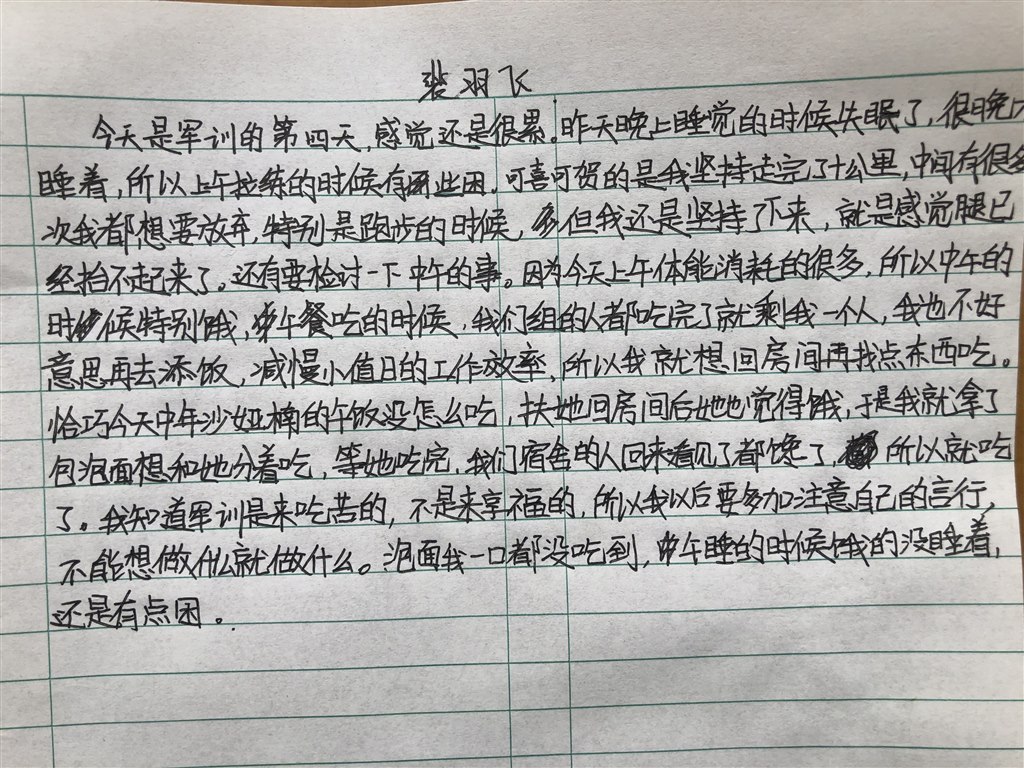 裴羽飞
今天是军训的第四天,感觉还是很累。昨天晚上睡觉的时候失眠了,很晚
睡着,所以上午拉练的时候有些困.可喜可贺的是我坚持走完了十公里,中间有很多
次我都想要放弃,特别是跑步的时候,但我还是坚持了下来,就是感觉腿已
经抬不起来了。还有要检讨一下中午的事。因为今天上午体能消耗的很多,所以中午的
时候特别饿,中午餐吃的时候,我们组的人都吃完了就剩我一个人,我也不好
意思再去添饭,减慢小值日的工作效率,所以我就想回房间再找点东西吃。
恰巧今天中午沙娅楠的午饭没怎么吃,扶她回房间后她也觉得饿,于是我就拿了
包泡面想和她分着吃,等她吃完,我们宿舍的人回来看见了都馋了,所以就吃
了。我知道军训是来吃苦的,不是来享福的,所以我以后要多加注意自己的言行,
不能想做什么就做什么。泡面我一口都没吃到,中午睡的时候饿的没睡着,
还是有点困。